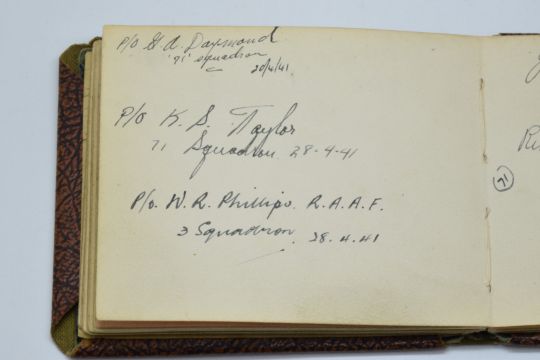 P/O G. A. Daymond
'71' Squadron
20/4/41
P/O K. S. Taylor
71 Squadron 28-4-41
P/o. W. R. Phillips. R.A.A.F.
3 Squadron. 28.4.41
71